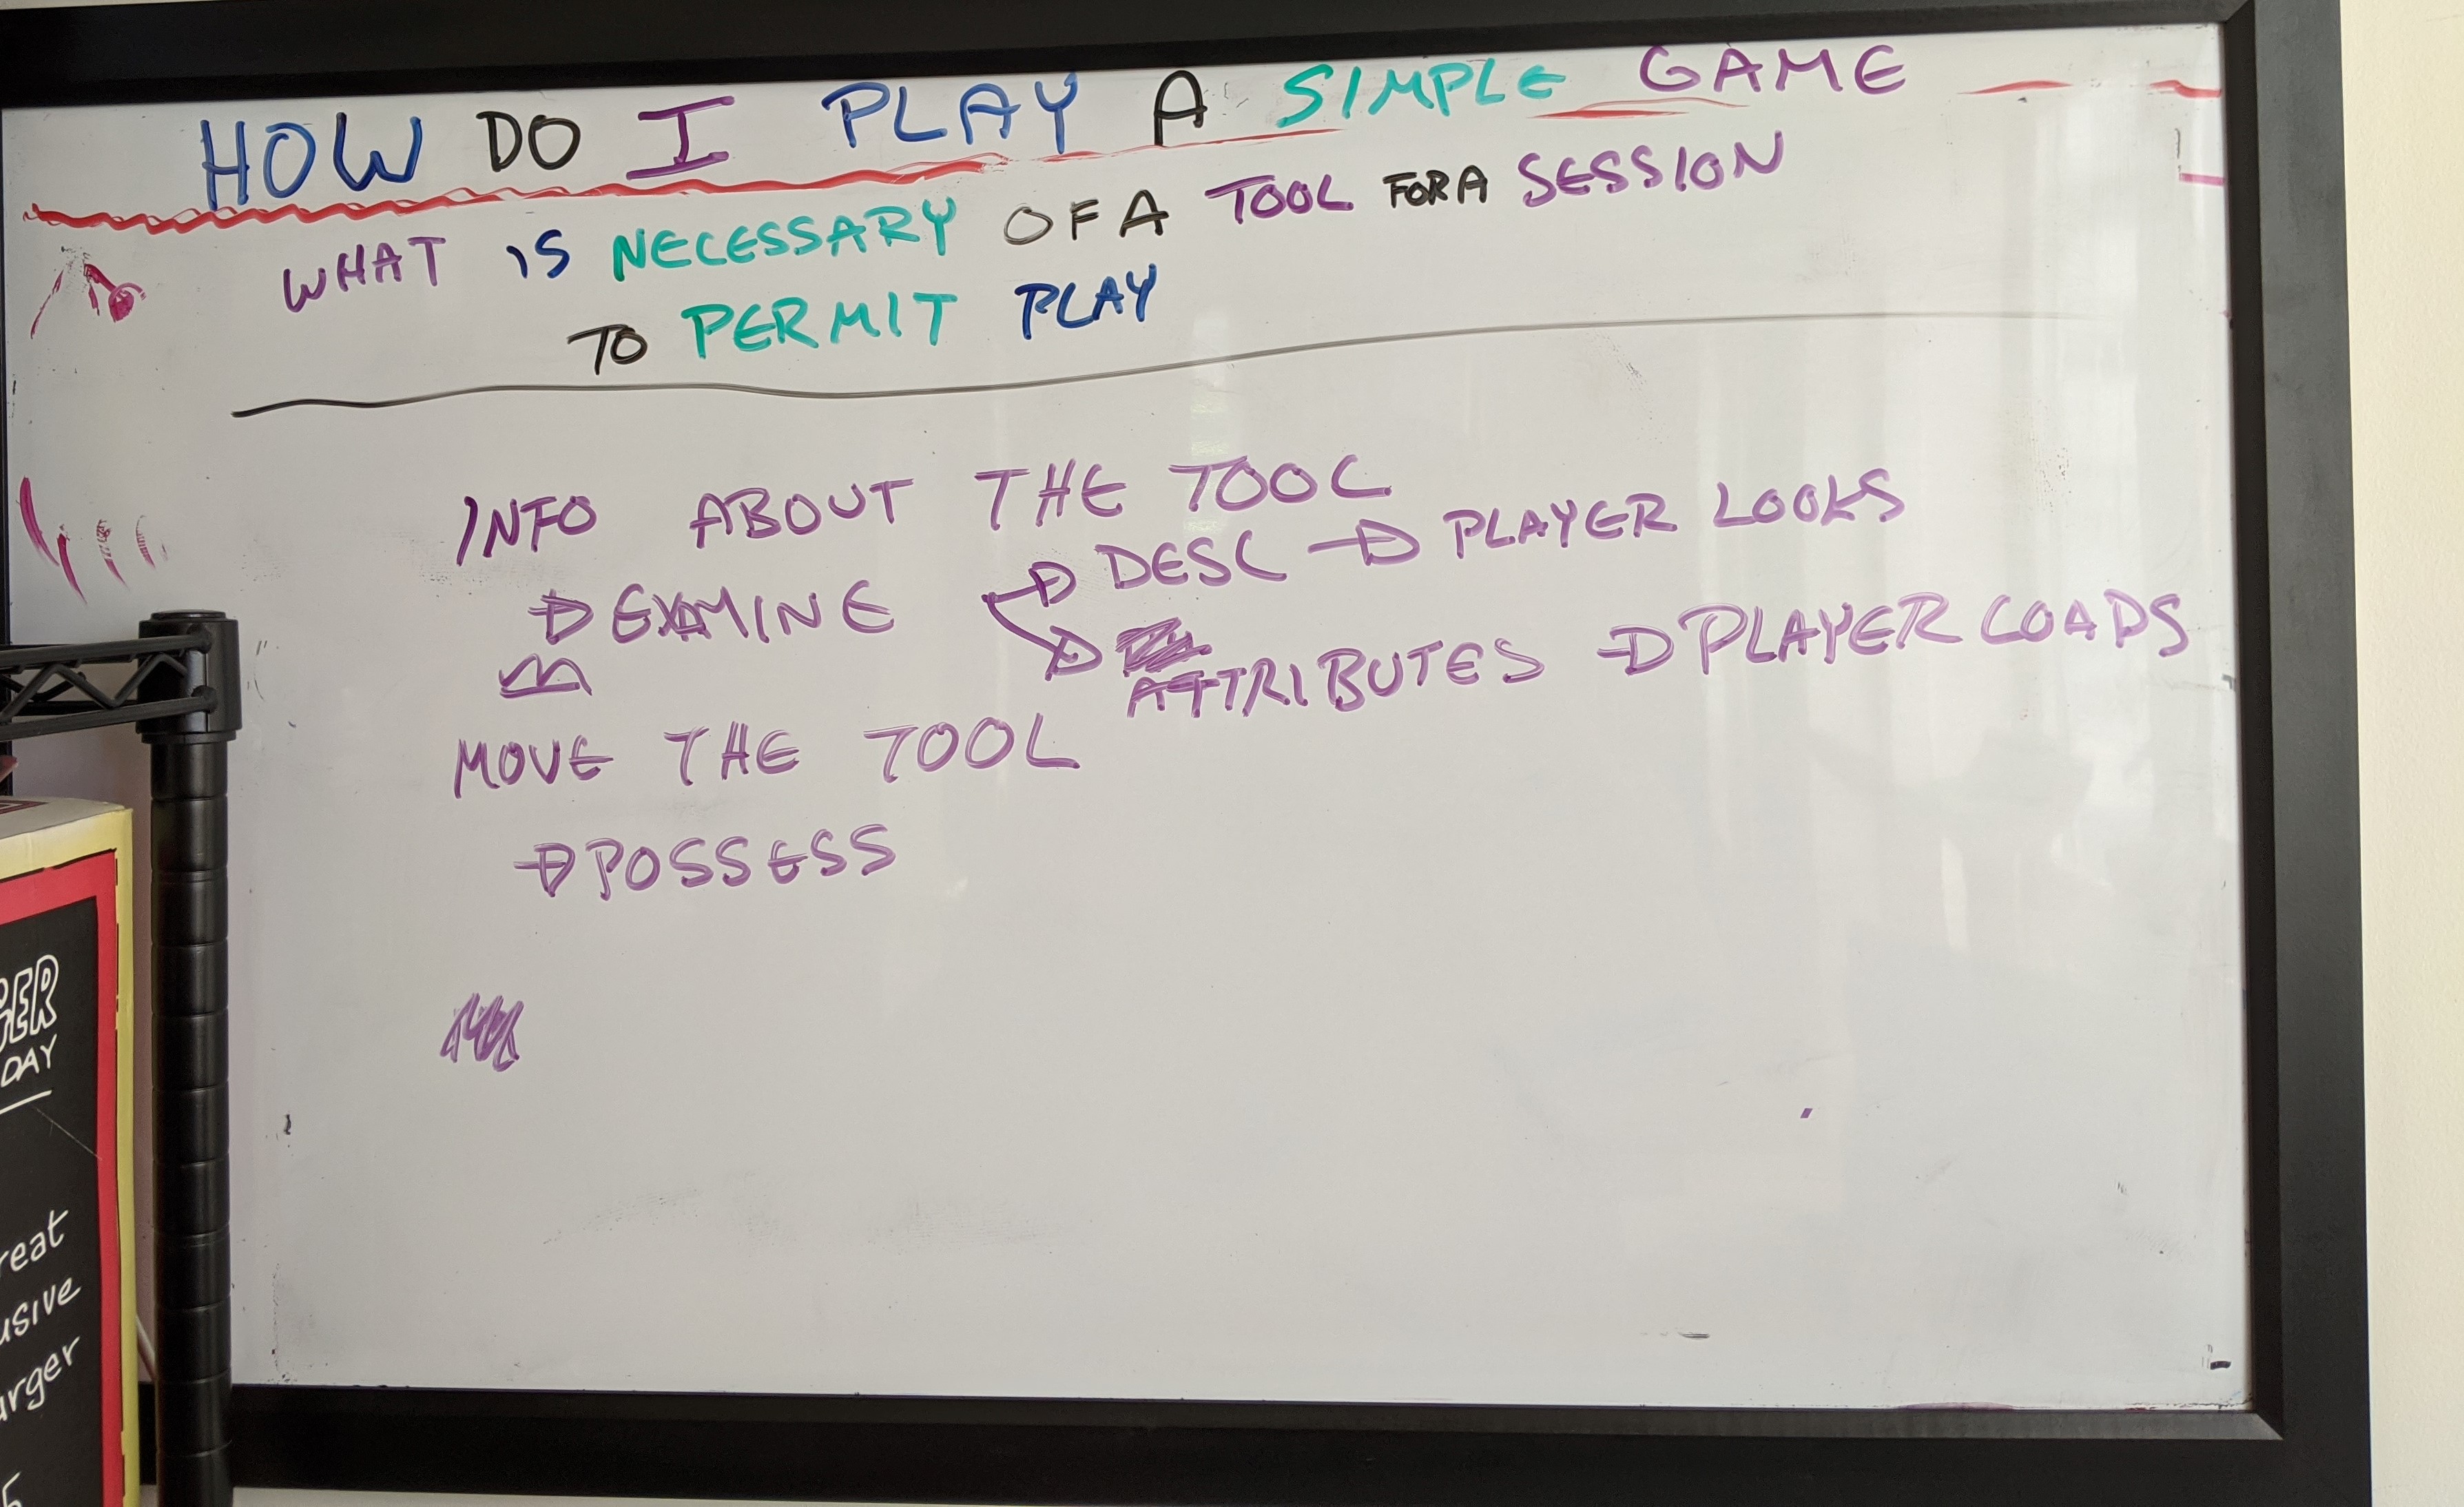 HOW DO I PLAY A SIMPLE GAME
WHAT IS NECESSARY OF A TOOL FOR A SESSION
TO PERMIT PLAY
INFO ABOUT THE TOOL
→ EXAMINE → DESC → PLAYER LOOKS
→ ATTRIBUTES → PLAYER LOADS
MOVE THE TOOL
→ POSSESS
DAY